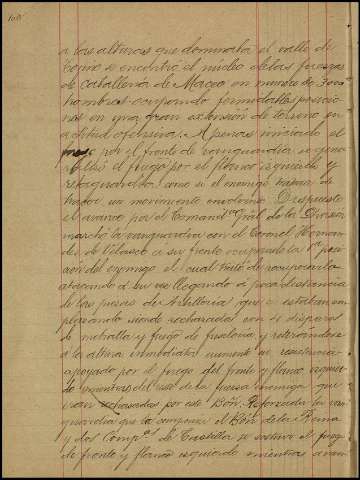 a las alturas que dominaba el valle de
se encontró el núcleo de las fuerzas
de Caballería de Maceo en número de 3000
hombres ocupando formidables posicio
nes en una gran extensión de terreno en
actitud ofensiva. Apenas iniciado el
por el frente de vanguardia se gene
ralizó el fuego por el flanco izquierdo y
retaguardia como si el enemigo tratara de
hacer un movimiento envolvente. Dispuesto
el avance por el Comandte Gral de la División
marchó la vanguardia con el Coronel Hernan
dez de Velasco a su frente ocupando la 1ª posi
ción del enemigo el cual trató de recuperarla
atacando a su vez llegando a poca distancia
de las piezas de Artillería que se estaban em
plazando siendo rechazados con disparos
de metralla y fuego de fusilería y retirándose
a la altura inmediata aumentó su resistencia
apoyado por el fuego del frente y flanco izquier
do mientras del de la fuerza enemiga que
eran rechazadas por este Bón. Reforzada la van
guardia que la componía el Bón de la Reina
y dos Compas de Castilla se sostuvo el fuego
de frente y flanco izquierdo mientras